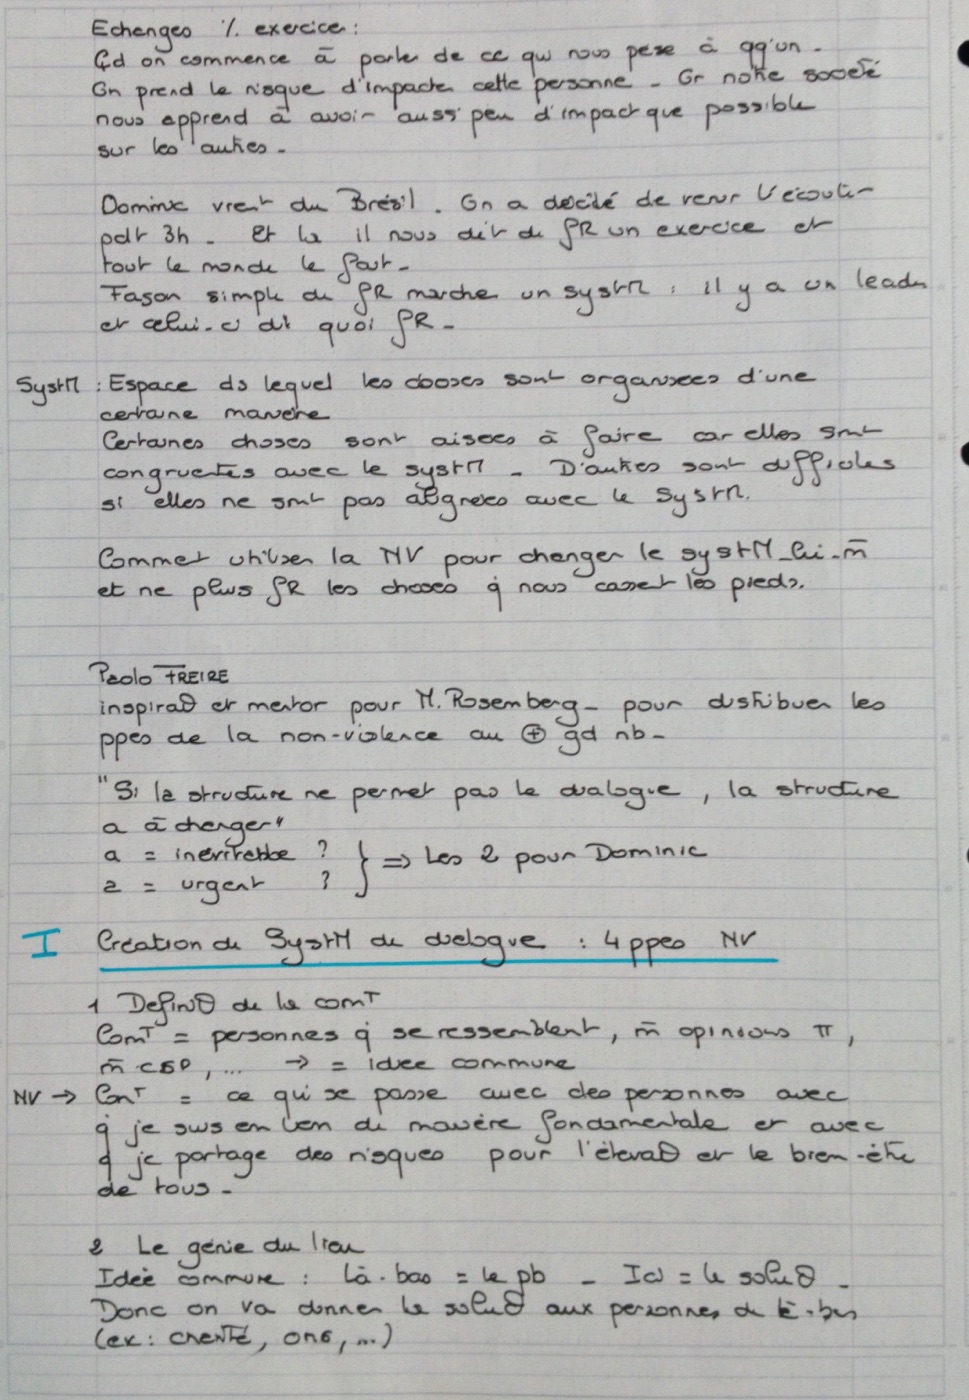 Echanges % exercice :
Qd on commence à parler de ce qui nous pèse à qq'un.
On prend le risque d'impacter cette personne - Or notre société
nous apprend à avoir aussi peu d'impact que possible
sur les autres.
Dominic vient du Brésil. On a décidé de venir l'écouter
pdt 3h. Et là il nous dit de fR un exercice et
tout le monde le fait.
Façon simple de fR marcher un systM : il y a un leader
et celui-ci dit quoi fR.
SystM : Espace ds lequel les choses sont organisées d'une
certaine manière
Certaines choses sont aisées à faire car elles sont
congruentes avec le systM - D'autres sont difficiles
si elles ne sont pas alignées avec le SystM.
Comment utiliser la NV pour changer le systM lui-m̄
et ne plus fR les choses q̇ nous cassent les pieds.
Paolo FREIRE
inspiraθ et mentor pour M. Rosemberg - pour distribuer les
ppes de la non-violence au ⊕ gd nb -
"Si la structure ne permet pas le dialogue, la structure
a à changer"
a = inévitable ? } => Les 2 pour Dominic
a = urgent ?
I Création de SystM de dialogue : 4 ppes NV
1 Définiθ de la comT
ComT = personnes q̇ se ressemblent, m̄ opinions π,
m̄ CSP, ... → = idée commune
NV → ComT = ce qui se passe avec des personnes avec
q̇ je suis en lien de manière fondamentale et avec
q̇ je partage des risques pour l'élévaθ et le bien-être
de tous -
2 Le génie du lieu
Idée commune : Là-bas = le pb - Ici = la soluθ -
Donc on va donner la soluθ aux personnes de là-bas
(ex : charité, ONG, ...)